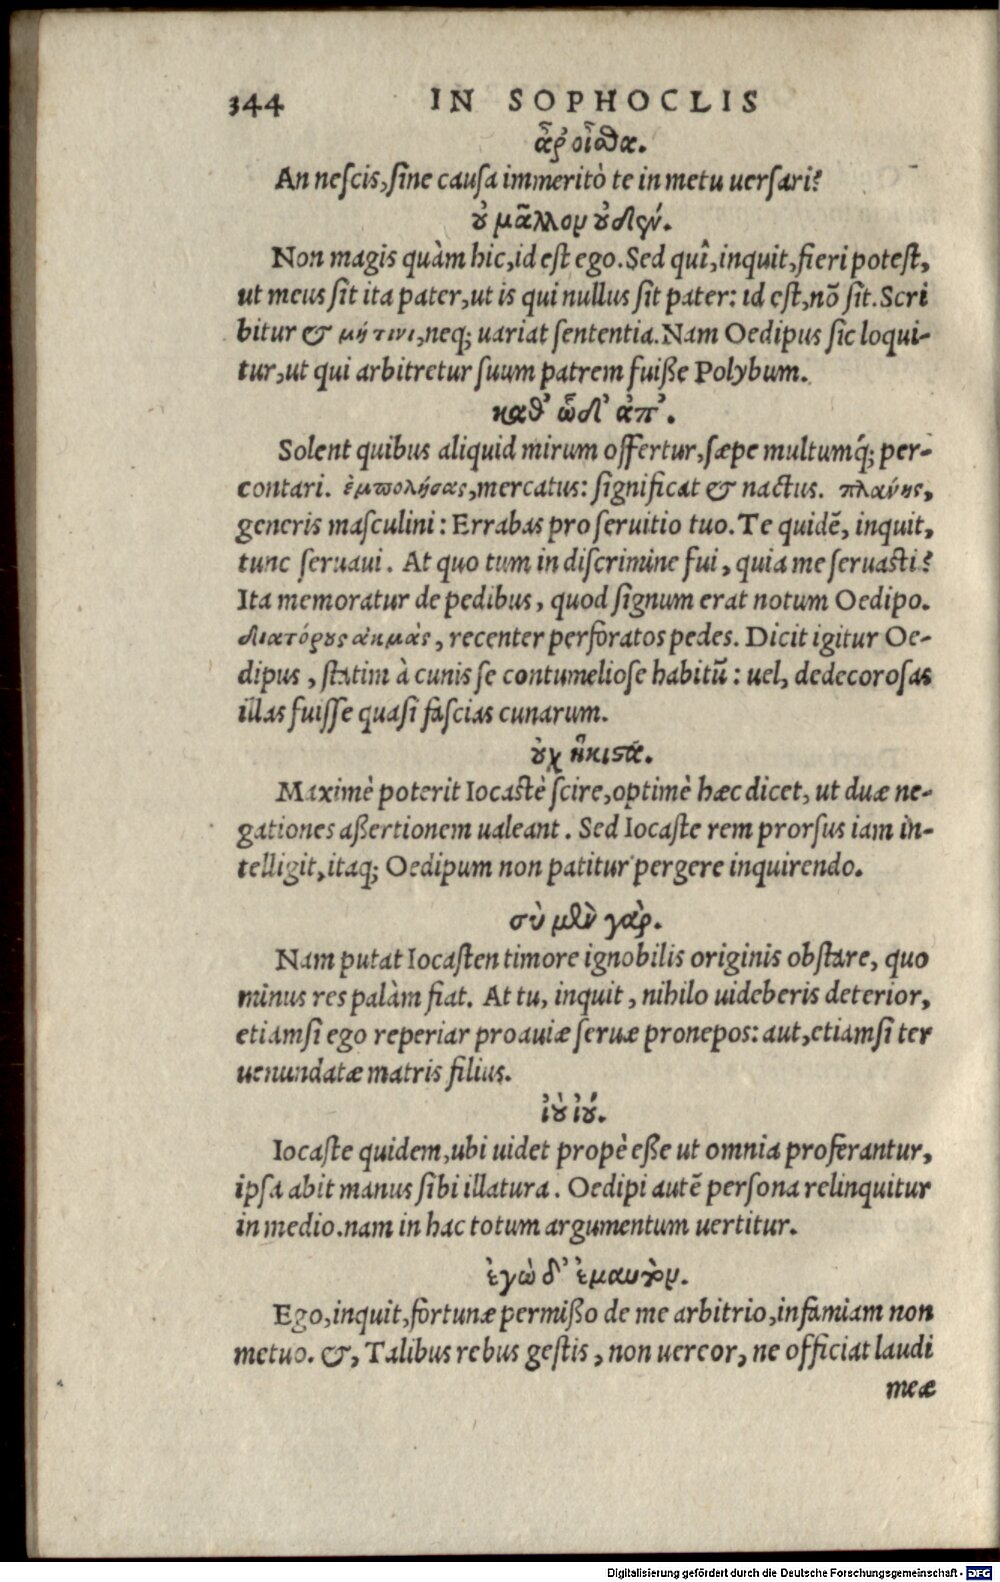 344 IN SOPHOCLIS
ἆρ' οἶσθα.
An nescis, sine causa immeritò te in metu uersari?
οὐ μᾶλλον οὐδέν.
Non magis quàm hic, id est ego. Sed quî, inquit, fieri potest,
ut meus sit ita pater, ut is qui nullus sit pater: id est, nõ sit. Scri
bitur & μήτινι, neq; uariat sententia. Nam Oedipus sic loqui-
tur, ut qui arbitretur suum patrem fuiße Polybum.
καθ' ὧδ' ἀπ'.
Solent quibus aliquid mirum offertur, sæpe multumq́; per-
contari. ἐμπολήσας, mercatus: significat & nactus. πλανής,
generis masculini: Errabas pro seruitio tuo. Te quidẽ, inquit,
tunc seruaui. At quo tum in discrimine fui, quia me seruasti?
Ita memoratur de pedibus, quod signum erat notum Oedipo.
διατόρους ἀκμὰς, recenter perforatos pedes. Dicit igitur Oe-
dipus, statim à cunis se contumeliose habitũ: uel, dedecorosas
illas fuisse quasi fascias cunarum.
οὐχ ἥκιστά.
Maximè poterit Iocastè scire, optimè hæc dicet, ut duæ ne-
gationes aßertionem ualeant. Sed Iocaste rem prorsus iam in-
telligit, itaq; Oedipum non patitur pergere inquirendo.
σὺ μὲν γὰρ.
Nam putat Iocasten timore ignobilis originis obstare, quo
minus res palàm fiat. At tu, inquit, nihilo uideberis deterior,
etiamsi ego reperiar proauiæ seruæ pronepos: aut, etiamsi ter
uenundatæ matris filius.
ἰοὺ ἰού.
Iocaste quidem, ubi uidet propè eße ut omnia proferantur,
ipsa abit manus sibi illatura. Oedipi autẽ persona relinquitur
in medio. nam in hac totum argumentum uertitur.
ἐγὼ δ' ἐμαυτὸν.
Ego, inquit, fortunæ permißo de me arbitrio, infamiam non
metuo. &, Talibus rebus gestis, non uereor, ne officiat laudi
meæ
Digitalisierung gefördert durch die Deutsche Forschungsgemeinschaft - DFG